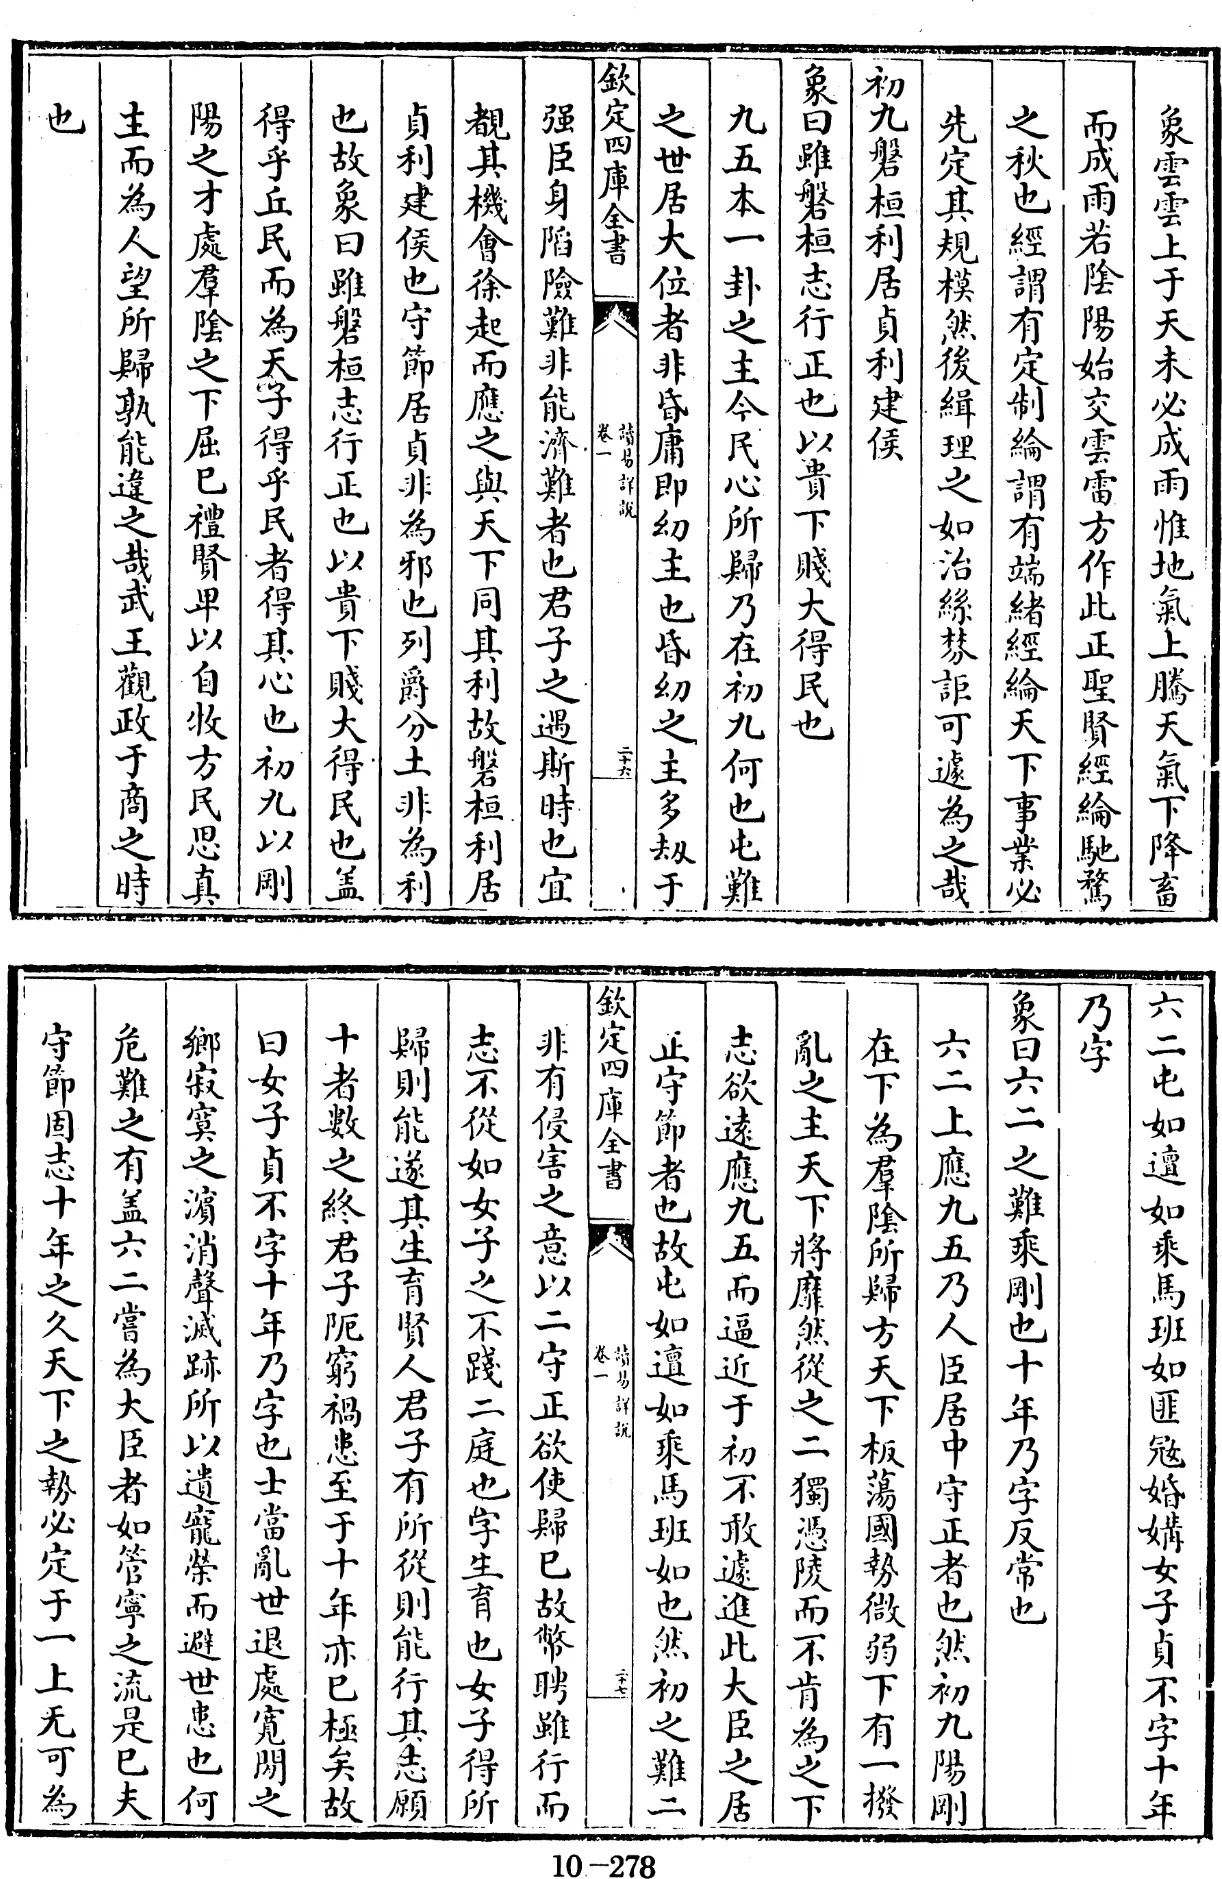 象雲雲上于天未必成雨惟地氣上騰天氣下降畜
而成雨若陰陽始交雲雷方作此正聖賢經綸馳騖
之秋也經謂有定制綸謂有端緒經綸天下事業必
先定其規模然後緝理之如治絲棼詎可遽為之哉
初九磐桓利居貞利建侯
象曰雖磐桓志行正也以貴下賤大得民也
九五本一卦之主今民心所歸乃在初九何也屯難
之世居大位者非昏庸即幼主也昏幼之主多刼于
欽定四庫全書
讀易詳說
卷一
二十六
强臣身陷險難非能濟難者也君子之遇斯時也宜
覩其機會徐起而應之與天下同其利故磐桓利居
貞利建侯也守節居貞非為邪也列爵分土非為利
也故象曰雖磐桓志行正也以貴下賤大得民也盖
得乎丘民而為天子得乎民者得其心也初九以剛
陽之才處羣陰之下屈已禮賢卑以自牧方民思真
主而為人望所歸孰能違之哉武王觀政于商之時
也
六二屯如邅如乘馬班如匪冦婚媾女子貞不字十年
乃字
象曰六二之難乘剛也十年乃字反常也
六二上應九五乃人臣居中守正者也然初九陽剛
在下為羣陰所歸方天下板蕩國勢微弱下有一撥
亂之主天下將靡然從之二獨憑陵而不肯為之下
志欲遠應九五而逼近于初不敢遽進此大臣之居
正守節者也故屯如邅如乘馬班如也然初之難二
欽定四庫全書
讀易詳說
卷一
二十七
非有侵害之意以二守正欲使歸已故幣聘雖行而
志不從如女子之不踐二庭也字生育也女子得所
歸則能遂其生育賢人君子有所從則能行其志願
十者數之終君子阨窮禍患至于十年亦已極矣故
曰女子貞不字十年乃字也士當亂世退處寬閒之
鄉寂寞之濵消聲滅跡所以遺寵榮而避世患也何
危難之有盖六二嘗為大臣者如管寧之流是已夫
守節固志十年之久天下之勢必定于一上无可為
10-278